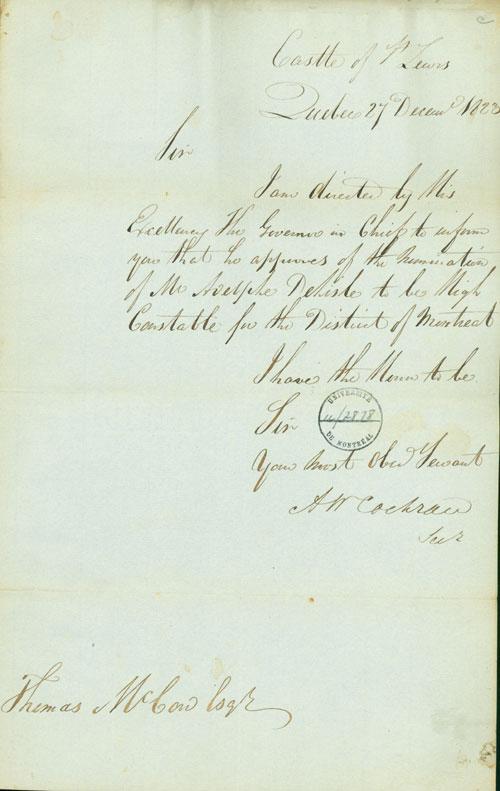 Castle of St Lewis
Quebec 27 Decemr
Sir
I am directed by His
Excellency The Governor in Chief to inform
you that he approves of the Nomination
of Mr Adelphe Delisle to be High
Constable for the District of Montreal
I have the Honor to be
Sir
UNIVERSITÉ
DE MONTRÉAL
Your Most Obed Servant
A W Cochran
Secy
Thomas McCord Esqr